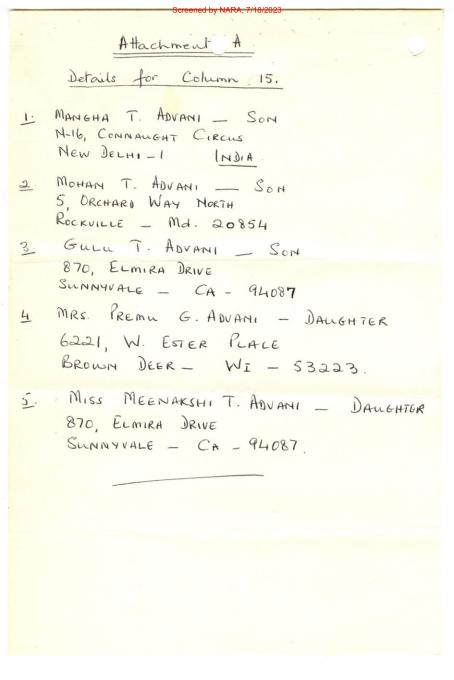 Screened by NARA, 7/18/2023
Attachment A
Details for Column 15.
1. MANGHA T. ADVANI — SON
N-16, CONNAUGHT CIRCUS
NEW DELHI - 1 INDIA
2. MOHAN T. ADVANI — SON
5, ORCHARD WAY NORTH
ROCKVILLE — Md. 20854
3 GULU T. ADVANI — SON
870, ELMIRA DRIVE
SUNNYVALE — CA - 94087
4. MRS. PREMU G. ADVANI — DAUGHTER
6221, W. ESTER PLACE
BROWN DEER — WI — 53223.
5. MISS MEENAKSHI T. ADVANI — DAUGHTER
870, ELMIRA DRIVE
SUNNYVALE — CA - 94087.